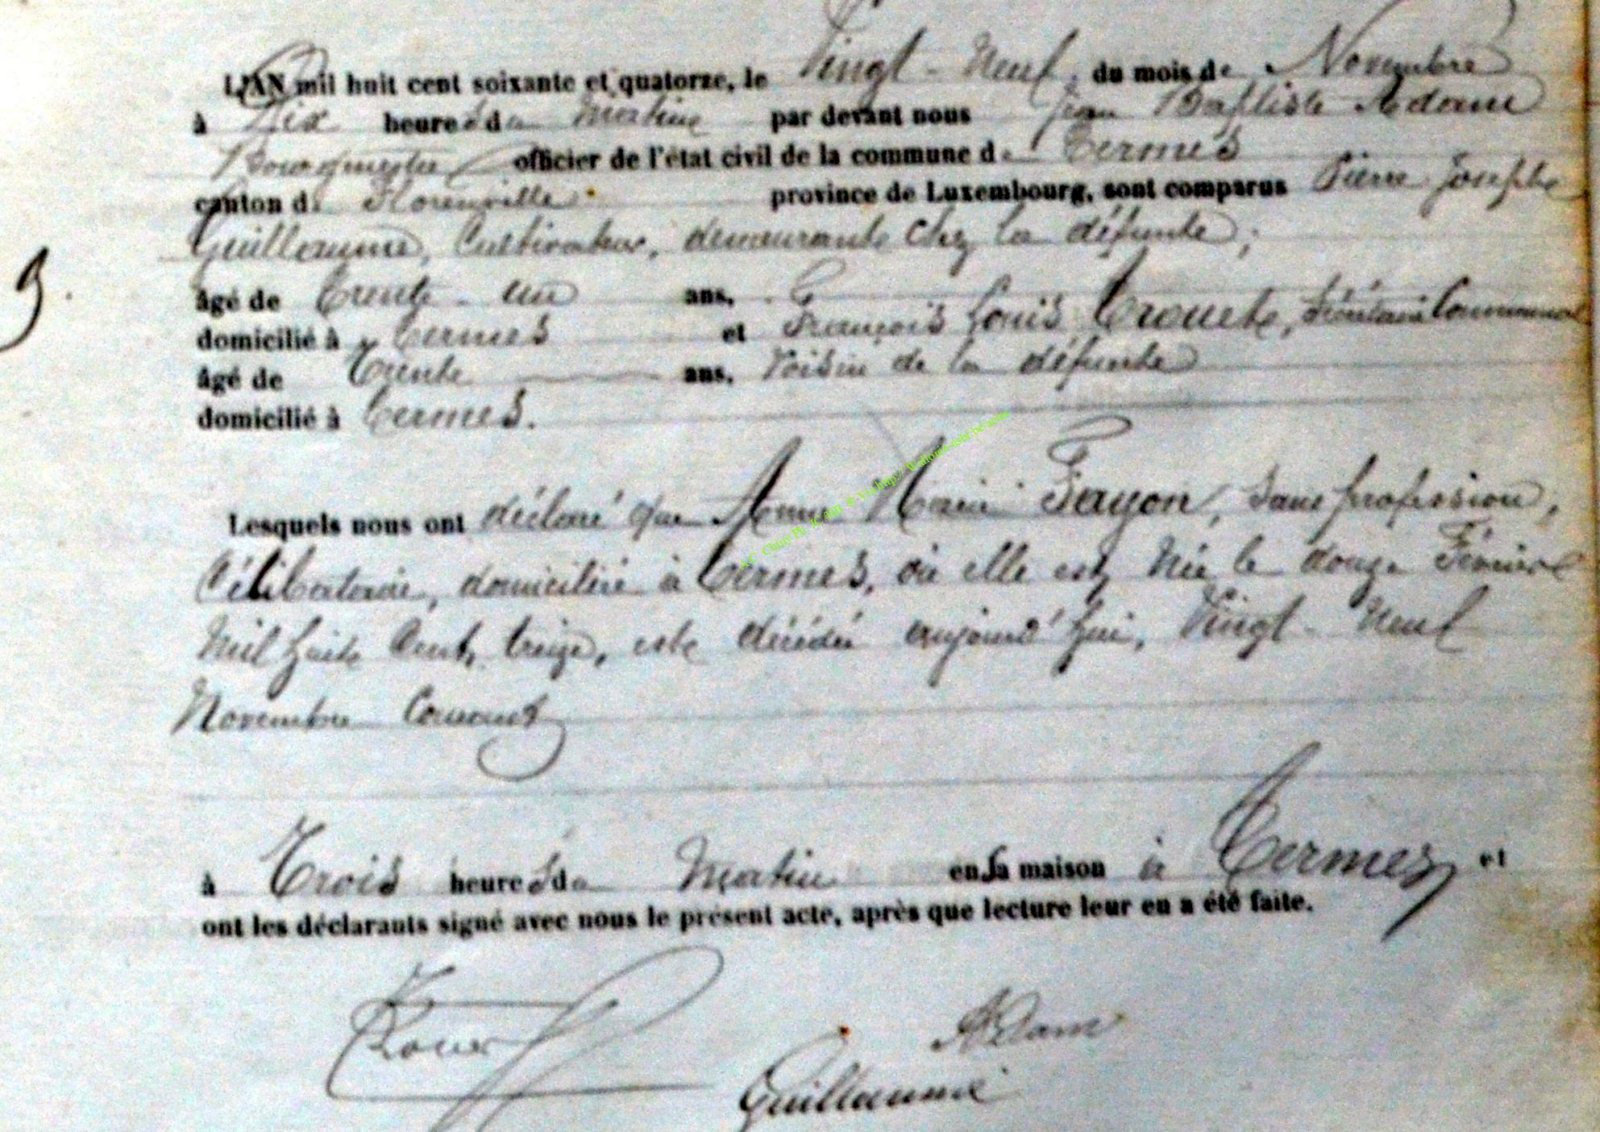 L'AN mil huit cent soixante et quatorze, le Vingt-Neuf, du mois de Novembre
à Dix heures du Matin par devant nous Jean Baptiste Adam
Bourgmestre officier de l'état civil de la commune de Termes
canton de Florenville province de Luxembourg, sont comparus Pierre Joseph
Guillaume, Cultivateur, demeurant chez la défunte;
âgé de Trente-un ans,
domicilié à Termes et François Louis, Secrétaire Communal
âgé de Trente ans, Voisin de la défunte
domicilié à Termes.
9.
Lesquels nous ont déclaré que Anne Marie Fayon, sans profession,
Célibataire, domiciliée à Termes, où elle est Née le douze Février
Mil huit Cent treize, est décédée aujourd'hui, Vingt-Neuf
Novembre Courant
à Trois heures du Matin en sa maison à Termes, et
ont les déclarants signé avec nous le présent acte, après que lecture leur en a été faite.
Adam
Guillaume